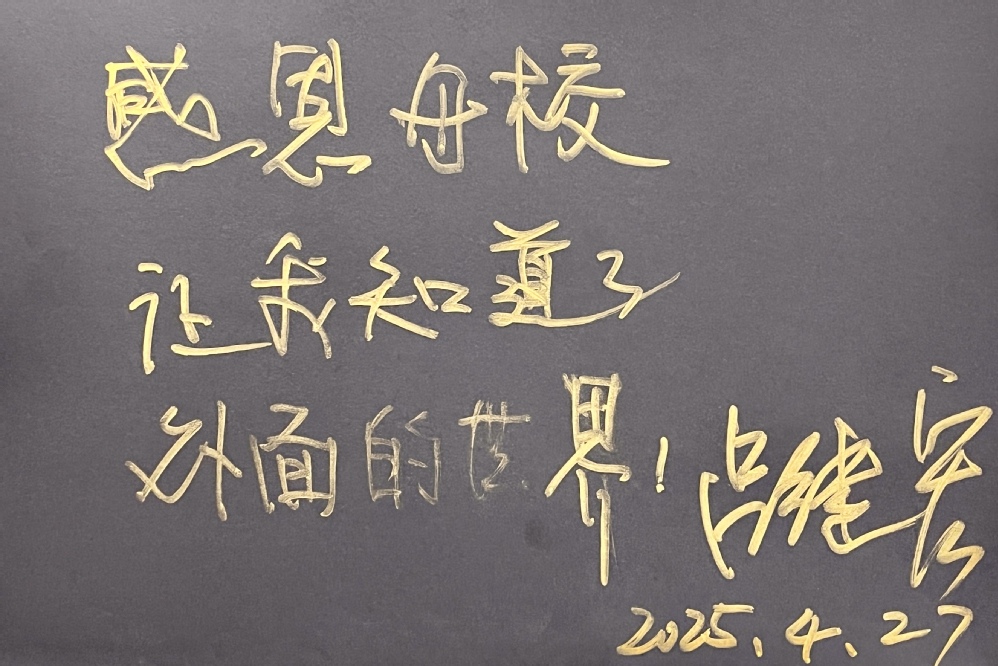 感恩母校
让我知道了
外面的世界!
占继宏
2025.4.27